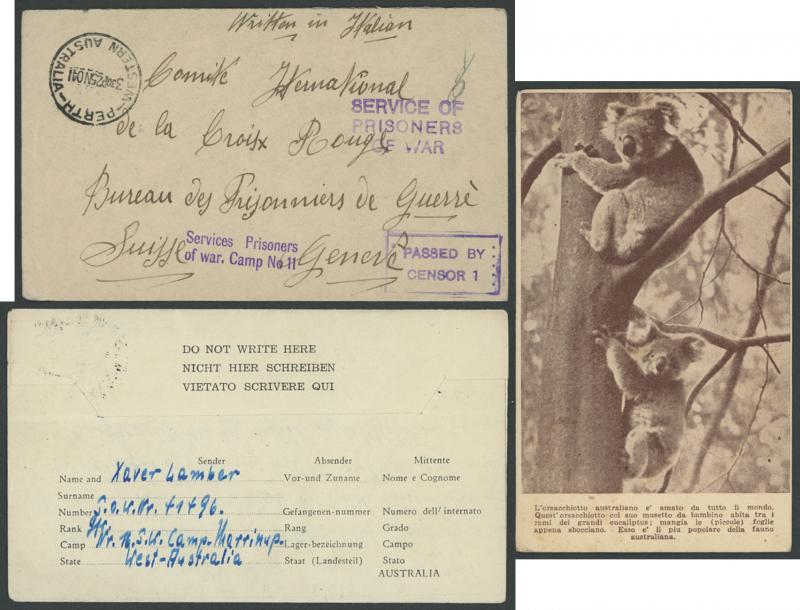 Written in Italian
PERTH - WESTERN AUSTRALIA
Comité International
de la Croix Rouge
Bureau des Prisonniers de Guerrè
Suisse Genevè
SERVICE OF
PRISONERS
OF WAR
Services Prisoners
of war. Camp No 11
PASSED BY
CENSOR 1
DO NOT WRITE HERE
NICHT HIER SCHREIBEN
VIETATO SCRIVERE QUI
Sender Absender Mittente
Name and Xaver Lamber Vor-und Zuname Nome e Cognome
Surname
Number Gefangenen-nummer Numero dell' internato
Rank Rang Grado
Camp Camp. Marrinup. Lager-bezeichnung Campo
State West-Australia Staat (Landesteil) Stato
AUSTRALIA
L'orsacchiotto australiano e' amato da tutto il mondo.
Quest'orsacchiotto col suo musetto da bambino abita tra i
rami dei grandi eucaliptus; mangia le (piccole) foglie
appena sbocciano. Esso e' il piu popolare della fauno
australiana.